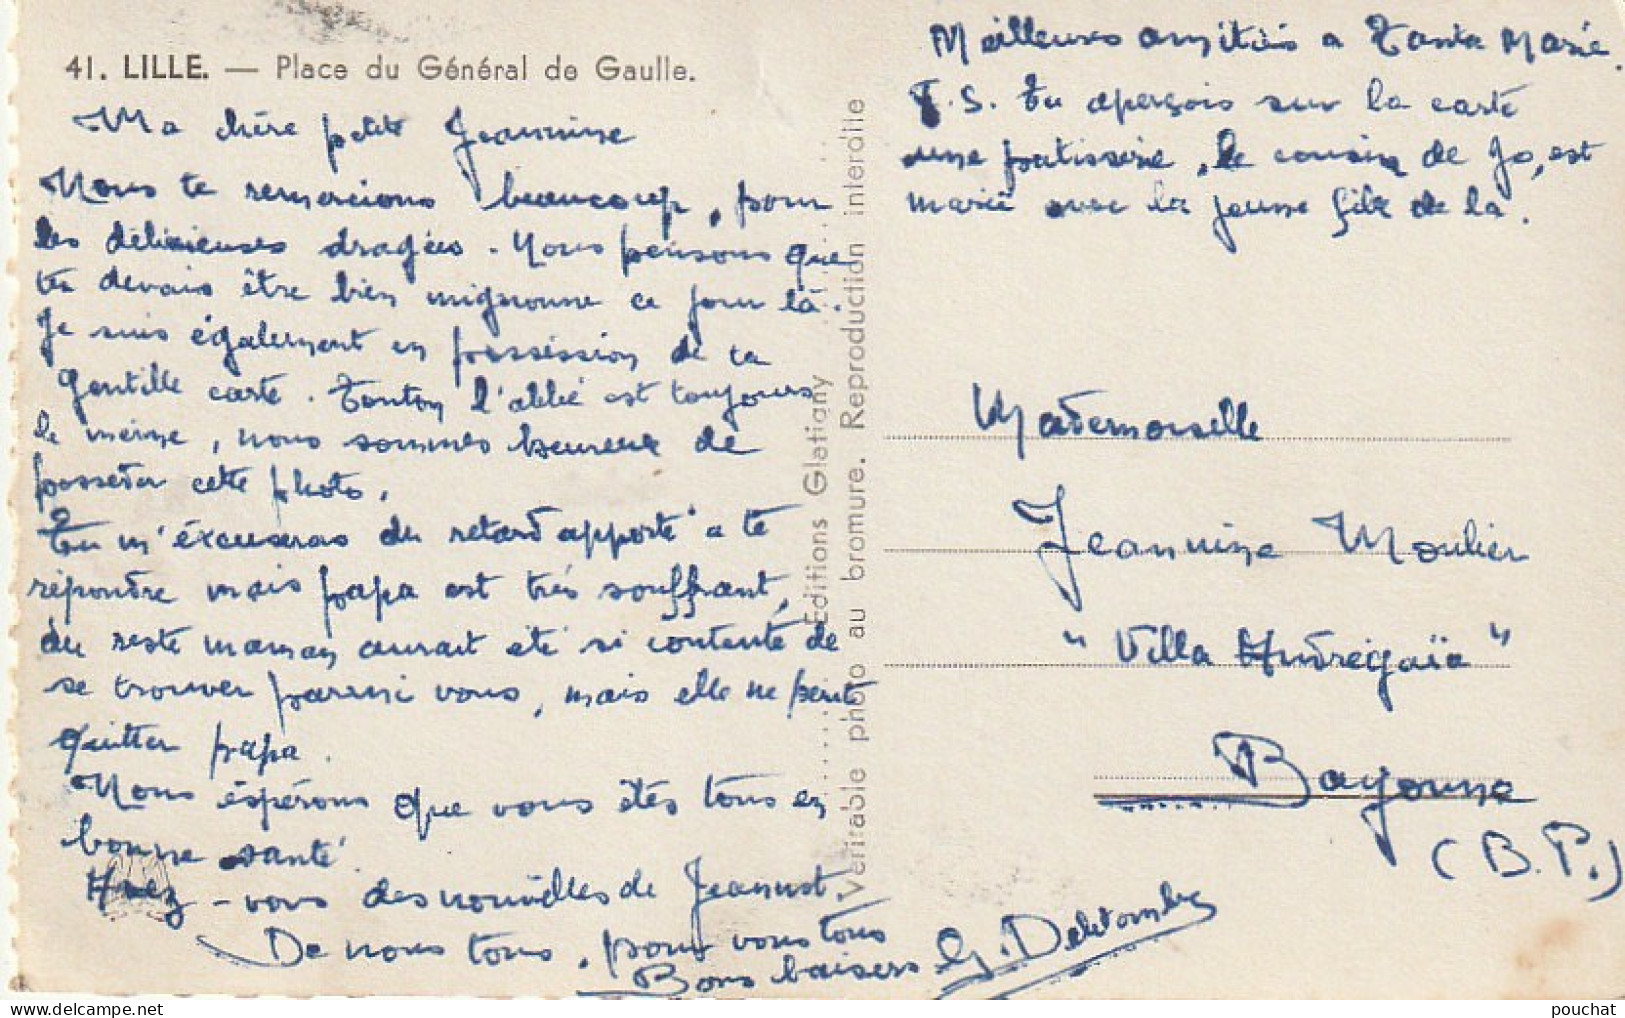 41. LILLE. — Place du Général de Gaulle.
Ma chère petite Jeannine
Nous te remercions beaucoup, pour
les délicieuses dragées. Nous pensons que
tu devais être bien mignonne ce jour là.
Je suis également en posséssion de ta
gentille carte. Tonton l'abbé est toujours
le même, nous sommes heureux de
posseder cette photo.
Tu m'éxcuseras du retard apporté a te
répondre mais papa est très souffrant,
du reste maman aurait été si contente de
se trouver parmi vous, mais elle ne peut
quitter papa.
Nous éspérons que vous êtes tous en
bonne santé.
Avez-vous des nouvelles de Jeannot.
De nous tous, pour vous tous
Bons baisers G. Delctombe
Editions Glatigny
Véritable photo au bromure. Reproduction interdite
Meilleures amitiés a Tante Marie.
P.S. Tu aperçois sur la carte
une patisserie, le cousin de Jo, est
marié avec la jeune fille de la.
Mademoiselle
Jeannine Moulier
"Villa Andregaïa"
Bayonne
(B.P.)
pouchat